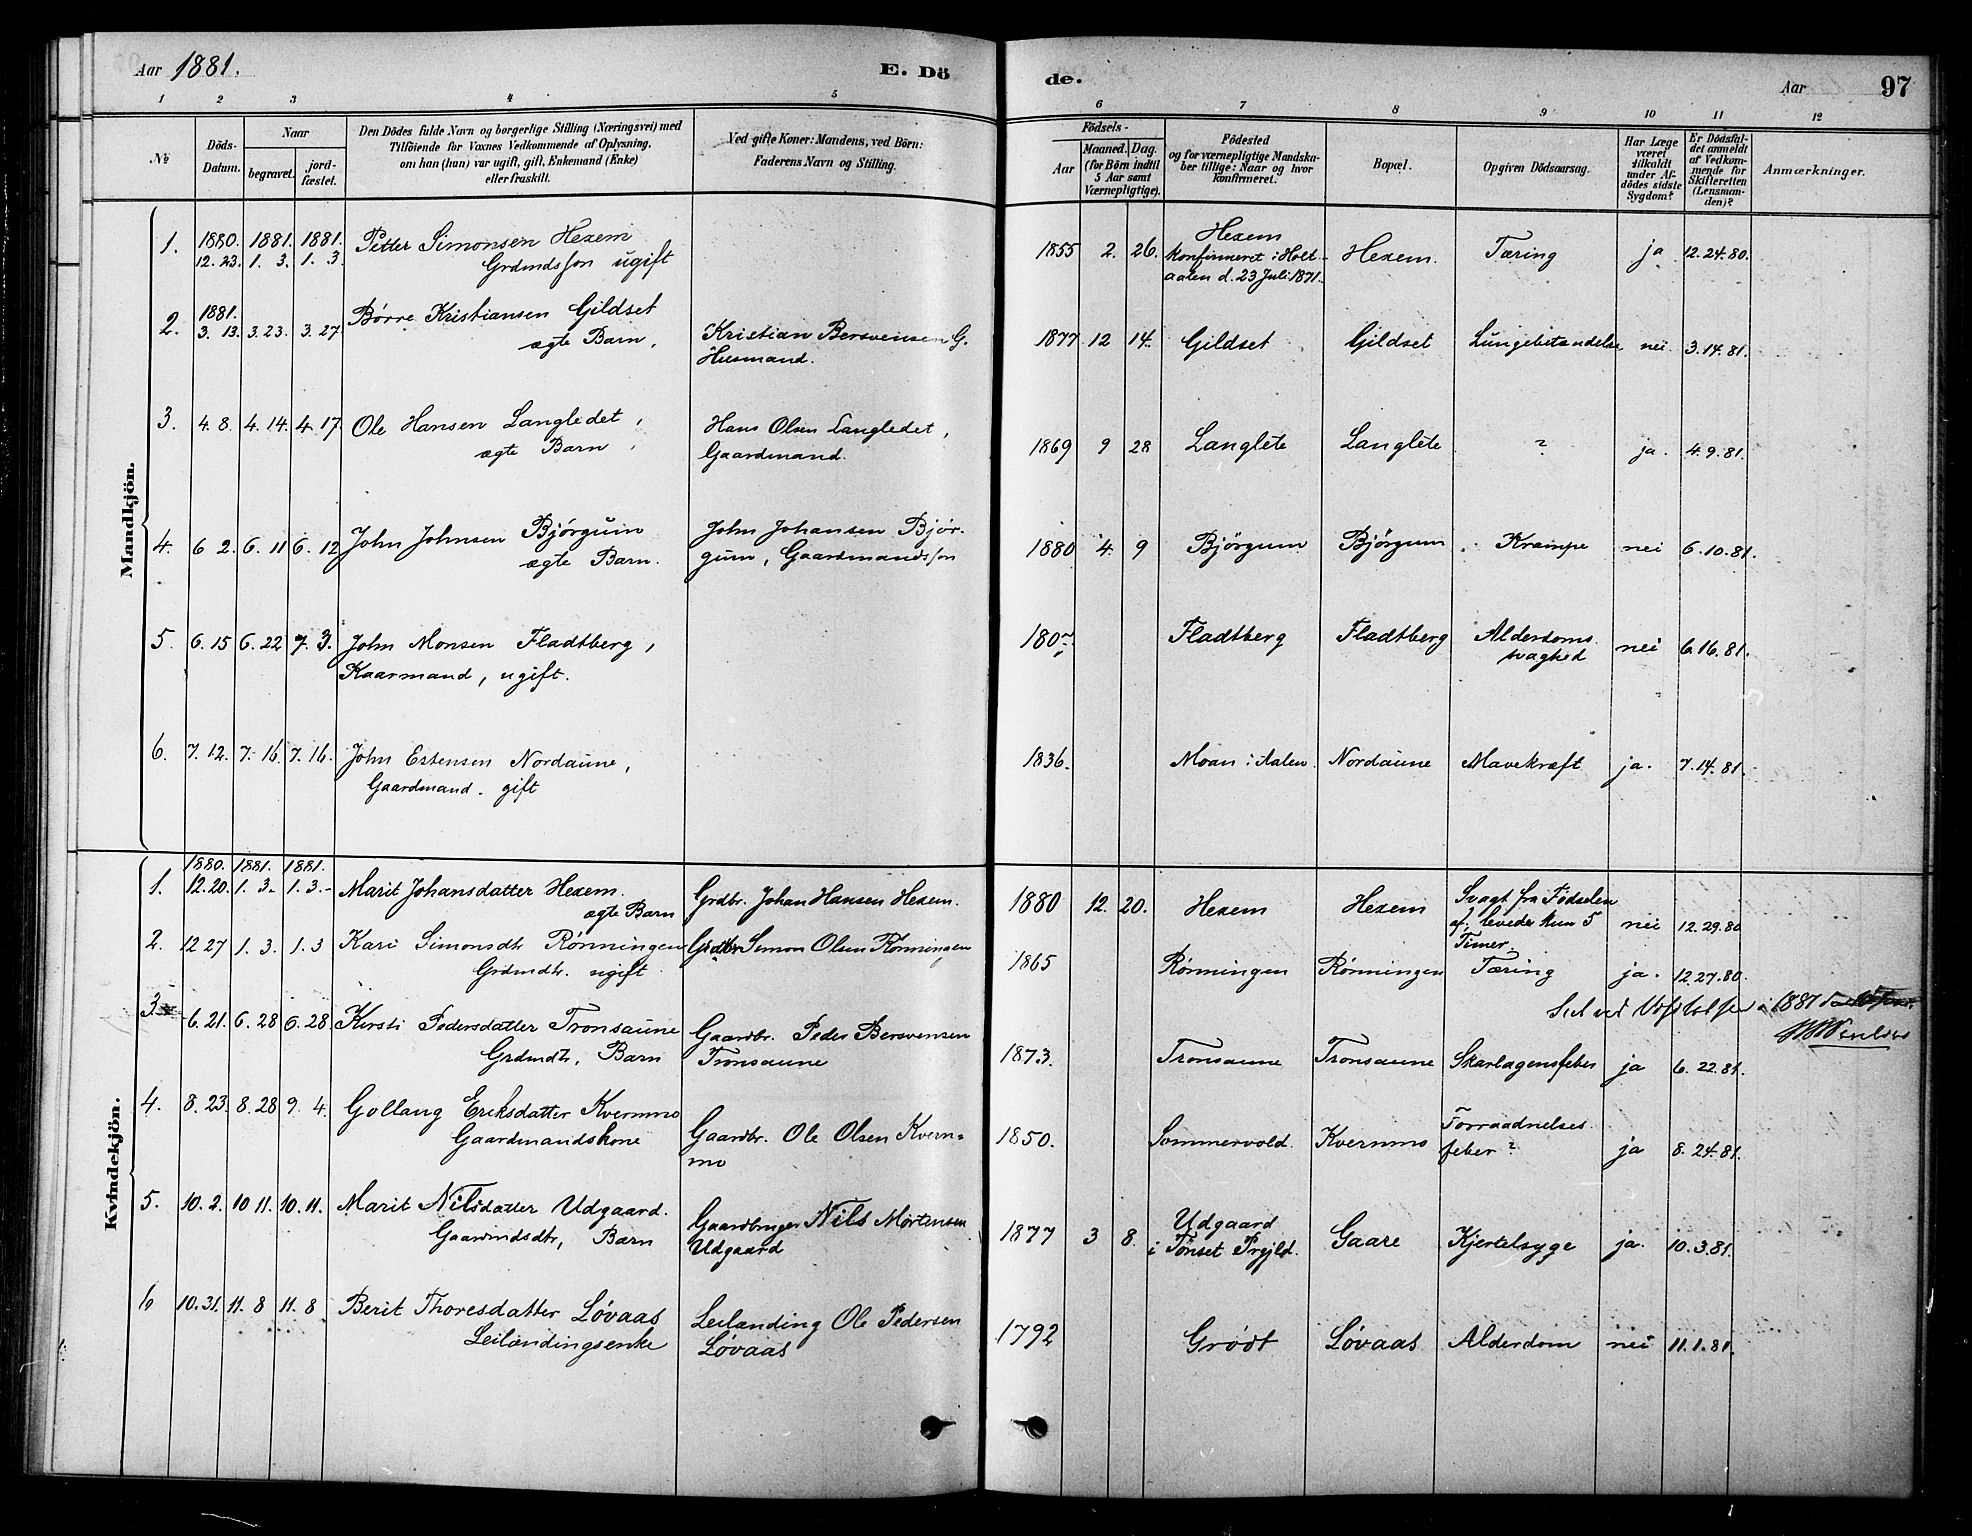 Aar 1881. E. Dö de. Aar 97
1 2 3 4 5 6 7 8 9 10 11 12
No
Döds-Datum.
Naar
begravet.
jord-fæstet.
Den Dödes fulde Navn og borgerlige Stilling (Næringsvei) med
Tilföiende for Voxnes Vedkommende af Oplysning,
om han (hun) var ugift, gift, Enkemand (Enke)
eller fraskilt.
Ved gifte Koner: Mandens, ved Börn:
Faderens Navn og Stilling.
Födsels-
Aar
Maaned. Dag.
(for Börn indtil
5 Aar samt
Værnepligtige).
Födested
og for værnepligtige Mandska-
ber tillige: Naar og hvor
konfirmeret.
Bopæl.
Opgiven Dödsaarsag.
Har Læge
været
tilkaldt
under Af-
dödes sidste
Sygdom?
Er Dödsfal-
det anmeldt
af Vedkom-
mende for
Skifteretten
(Lensman-
den)?
Anmærkninger.
Mandkjön.
1. 1880. 1881. 1881. Petter Simonsen Hexem 1855 2. 26. Hexem Hexem. Tæring ja 12.24.80.
12.23. 1. 3. 1. 3. Grdmdssøn ugift konfirmeret i Holt-
aalen d. 23 Juli 1871.
2. 1881. Børre Kristiansen Gildset
3. 13. 3.23. 3. 27 ægte Barn, Kristian Bersvensen G. 1877 12 14. Gildset Gildset Lungebetændelse nei. 3.14.81.
Husmand.
3. 4. 8. 4. 14. 4. 17. Ole Hansen Langledet, Hans Olsen Langledet, 1869 9 28 Langlete Langlete ? ja. 4.9.81.
ægte Barn Gaardmand.
4. 6 2. 6. 11 6. 12 John Johnsen Bjørgum John Johansen Bjør- 1880 4. 9 Bjørgum Bjørgum Krampe nei 6.10.81.
ægte Barn. gum, Gaardmandssøn
5. 6. 15 6. 22 7. 3. John Monsen Fladtberg, 180 Fladtberg Fladtberg Alderdoms- nei 6.16.81.
Kaarmand, ugift. svaghed
6. 7. 12. 7. 16. 7. 16. John Estensen Nordaune, 1836. Moan i Aalen. Nordaune Mavekræft ja. 7.14.81.
Gaardmand. gift
Kvindekjön.
1880. 1881. 1881.
1. 12.20. 1. 3.- 1. 3.- Marit Johansdatter Hexem. Grdbr. Johan Hansen Hexem. 1880 12. 20. Hexem Hexem Svagt fra Fødselen nei 12.29.80
ægte Barn af; levede kun 5
Timer.
2. 12 27 1. 3. 1. 3 Kari Simonsdtr Rønningen Grdbr Simon Olsen Rønningen 1865 Rønningen Rønningen Tæring ja. 12.27.80.
Grdmdtr. ugift
1881
3 6.21. 6. 28 6. 28 Kirsti Pedersdatter Tronsaune Gaardbr. Peder Bersvensen 1873. Tronsaune Tronsaune Skarlagensfeber ja 6. 22.81.
Grdmdtr, Barn Tronsaune
4. 8. 23. 8. 28 9. 4. Gollaug Eriksdatter Kvernmo Gaardbr. Ole Olsen Kvern- 1850. Sommervold. Kvernmo Forraadnelses- ja 8. 24.81.
Gaardmandskone mo feber ?
5. 10. 2. 10 11. 10. 11. Marit Nilsdatter Udgaard. Gaardbruger Nils Mortensen 1877 3 8. Udgaard Gaare Kjertelsyge ja. 10.3.81.
Gaarmdsdtr, Barn Udgaard i Tønset Prgjld.
6 10. 31. 11. 8 11. 8 Berit Thoresdatter Løvaas Leilænding Ole Pedersen 1792 Grødt Løvaas Alderdom nei 11.1.81.
Leilændingsenke Løvaas